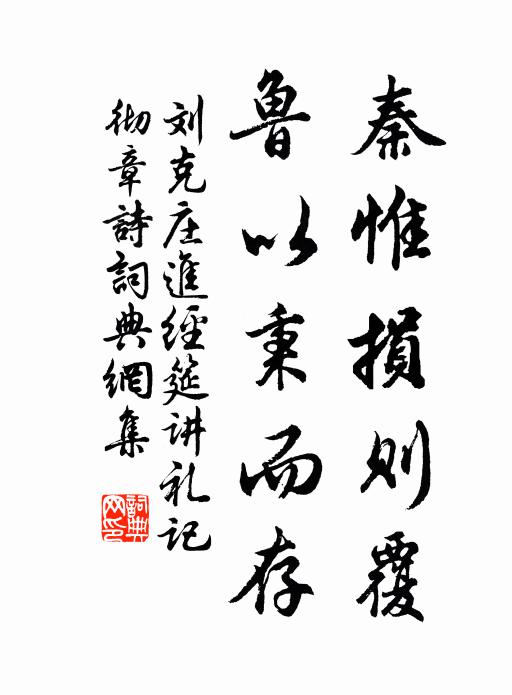 秦惟損则覆
魯以秉而存
刘克庄進經筵讲礼记
彻章詩詞典網集
詞典网印